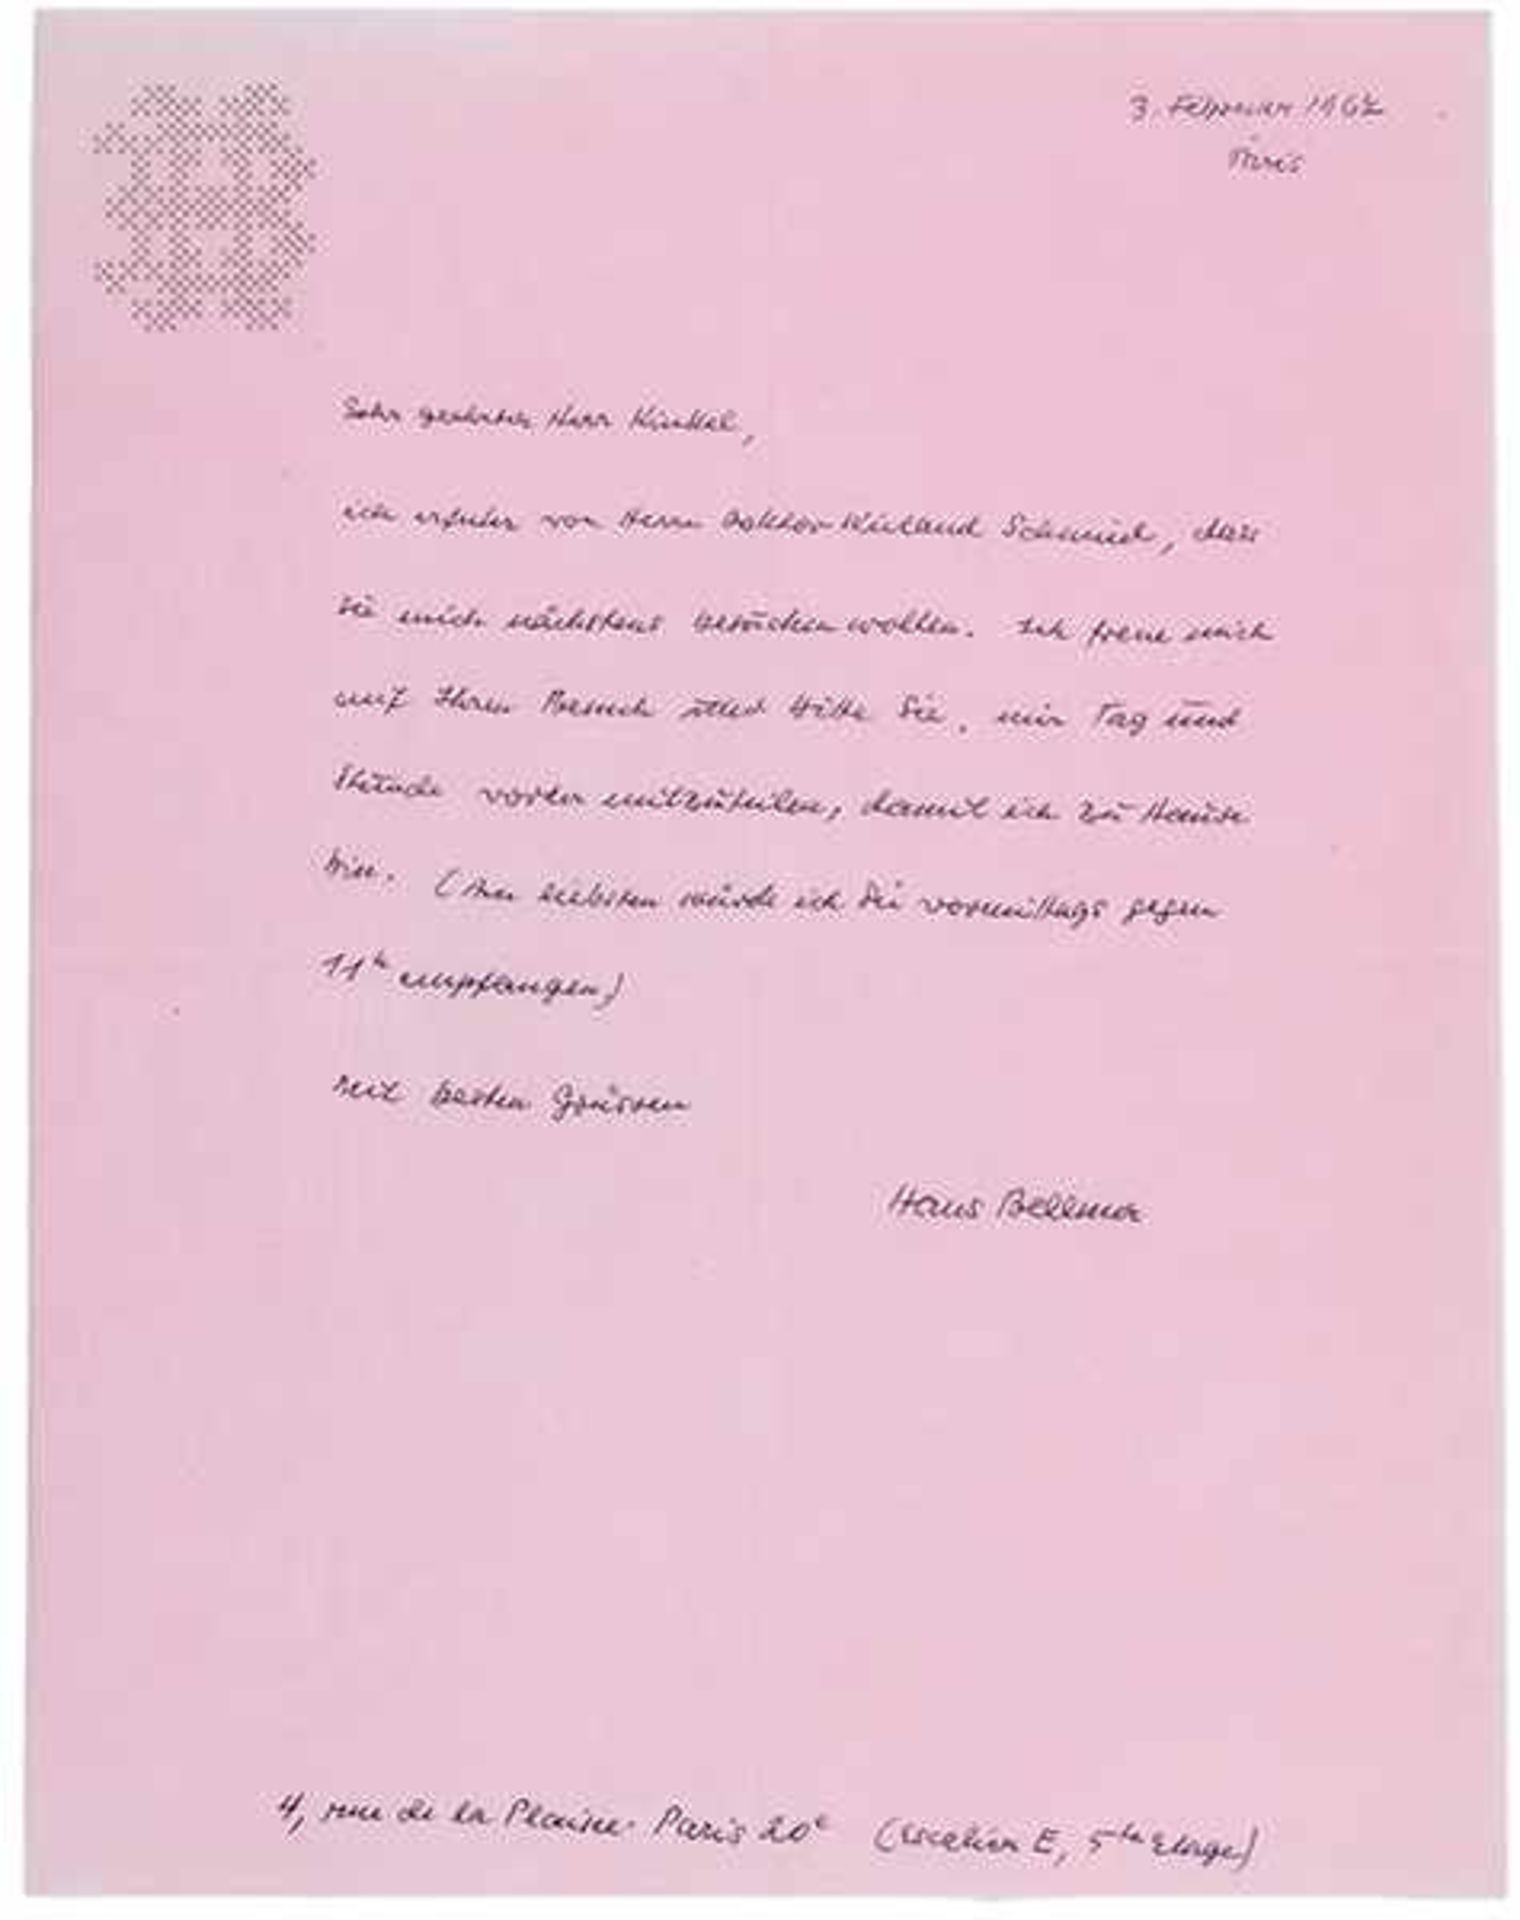 3. Februar 1962
Paris
Sehr geehrter Herr Kinkel,
ich erfuhr von Herrn Doktor Wieland Schmied, dass
Sie mich nächstens besuchen wollen. Ich freue mich
auf Ihren Besuch und bitte Sie, mir Tag und
Stunde vorher mitzuteilen, damit ich zu Hause
bin. (Am liebsten würde ich Sie vormittags gegen
11h empfangen)
Mit besten Grüssen
Hans Bellmer
4, rue de la Plaine. Paris 20e (Escalier E, 5te Etage)